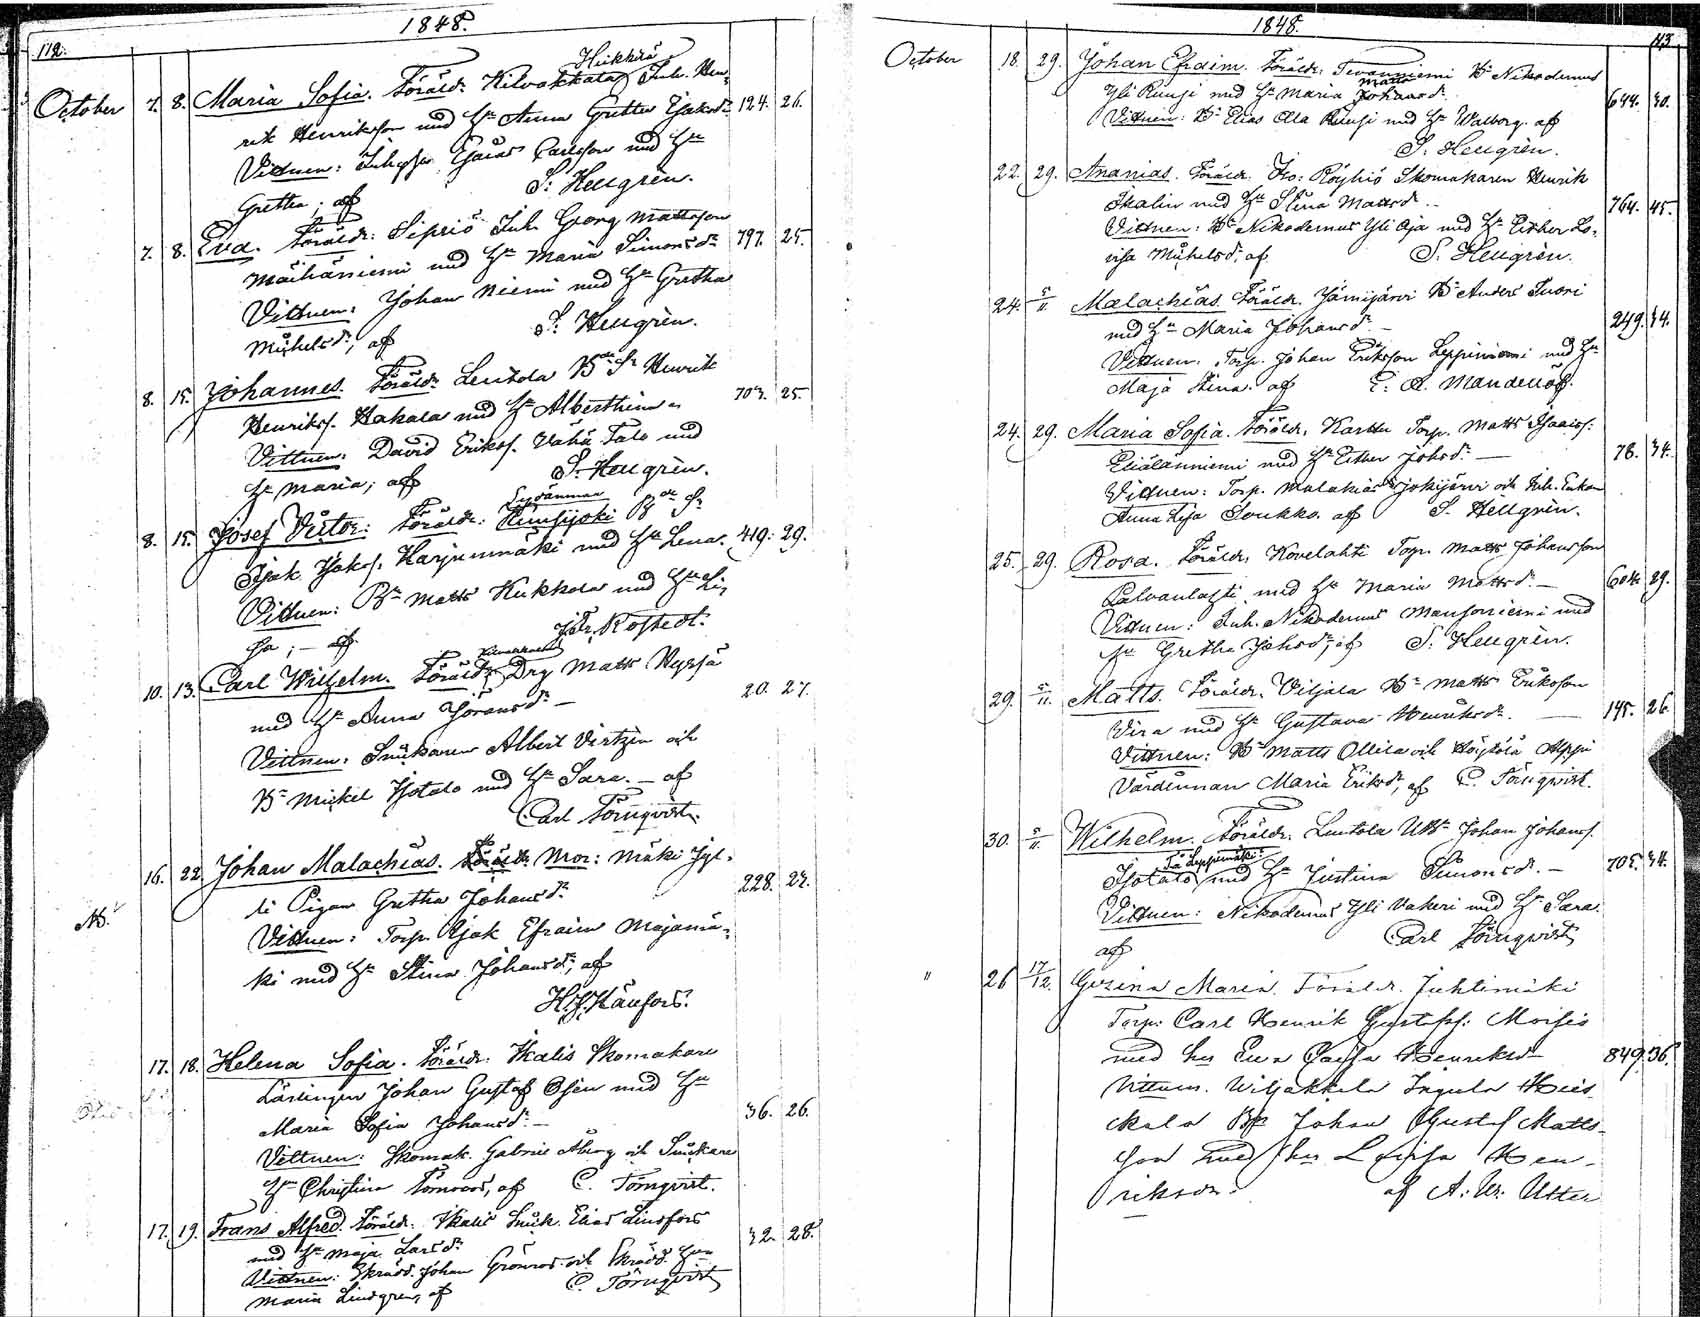 112.
1848.
Hükkilä
October 7. 8. Maria Sofia. Föräldr. Kilvakkala Inh. Hen-
rik Henriksson med H:u Anna Gretha Isaksdr. 124. 26.
Vittnen: Inhyses Isaac Carlsson med H:u
Gretha; af S. Hellgrén.
7. 8. Eva. Föräldr: Sipriö Inh. Georg Mattsson
Mäihäniemi med H:u Maria Simonsdr. 797. 25.
Vittnen: Johan Niemi med H:u Gretha
Michelsdr; af S. Hellgrén.
8. 15. Johannes. Föräldr. Leutola Bde Sn Henrik
Henrikss. Hakala med H:u Alberthina 703. 25.
Vittnen: David Erikss. Vähä Talo med
H:u Maria; af S. Hellgrén.
Sydänmaa
8. 15. Josef Victor: Föräldr: Riuhijoki Bde Sn
Isak Jakss. Harjunmäki med H:u Lena. 419. 29.
Vittnen: Bn Matts Kukkola med H:u Li-
sa; af Joh. Rostedt.
Kilvakkala
10. 13. Carl Wilhelm. Föräldr. Drg Matts Nyssä
med H:u Anna Jöransdr. 20. 27.
Vittnen: Snickaren Albert Virtzén och
Bn Mickel Isotalo med H:u Sara. af
Carl Törnqvist.
16. 22. Johan Malachias. Föräldr. Mor: Mäki Jyl-
li Pigan Gretha Johansdr. 228. 27.
NB.
Vittnen: Torp. Isak Efraim Majamä-
ki med H:u Stina Johansdr; af
H. J. Känfors.
17. 18. Helena Sofia. Föräldr: Ikalis Skomakare
Lärlingen Johan Gustaf Osén med H:u
Maria Sofia Johansdr. 36. 26.
Vittnen: Skomak. Gabriel Åberg och Snickare
H:un Christina Törnroos, af C. Törnqvist.
17. 19. Frans Alfred. Föräldr: Ikalis Snick. Elias Lindfors
med H:u Maja Larsdr. 32. 28.
Vittnen: Skrädd. Johan Grönros och Skrädd. H:un
Maria Lindgren, af C. Törnqvist
1848.
113.
October 18. 29. Johan Efraim. Föräldr. Tevanniemi Bn Nikodemus
Yli Riuhi med H:u Maria Johansdr. Matts 644. 30.
Vittnen: Bn Elias Ala Riuhi med H:u Walborg. af
S. Hellgrén.
22. 29. Ananias. Föräldr. Ikso: Röyhiö Skomakaren Henrik
Ikalin med H:u Stina Mattsdr. 764. 45.
Vittnen: Bn Nikodemus Yli Äijä med H:u Esther Lo-
visa Michelsdr; af S. Hellgrén.
24. 5/11 Malachias. Föräldr. Jämijärvi Bn Anders Suoni
med H:u Maria Johansdr. 249. 34.
Vittnen. Torp. Johan Eriksson Leppiniemi med H:u
Maja Stina. af E. A. Mandellöf.
24. 29. Maria Sofia. Föräldr. Karttu Torp. Matts Isaacss.
Eteläänniemi med H:u Esther Johsdr. 78. 34.
Vittnen: Torp. Malakias Isojokijärvi och Inh. Enkan
Anna Lisa Soukko. af S. Hellgrén.
25. 29. Rosa. Föräldr. Kovelahti Torp. Matts Johansson
Palvanlahti med H:u Maria Mattsdr. 604. 29.
Vittnen: Inh. Nikodemus Mansoniemi med
H:u Gretha Johsdr; af S. Hellgrén.
29. 5/11. Matts. Föräldr. Viljala Bn Matts Eriksson
Vira med H:u Gustava Henriksdr. 145. 26.
Vittnen: Bn Matts Ollila och Höytölä Alppi
Värdinnan Maria Eriksdr, af C. Törnqvist.
30. 5/11 Wilhelm. Föräldr: Luutola Utbn Johan Johanss.
Isotalo med H:u Justina Simonsdr. 705. 34.
Vittnen: Nikodemus Yli Vakeri med H:u Sara.
af Carl Törnqvist
" 26 17/12. Gozina Maria Föräldr. Juhtimäki
Torp. Carl Henrik Gustafss: Moisio
med hu Eva Cajsa Henriksdr 849. 36.
Vittnen. Wiljakkala Ingula Heis
kala Bst Johan Gustaf Matts-
son med hu Lovisa Hen-
riksdr. af A: W: Utter